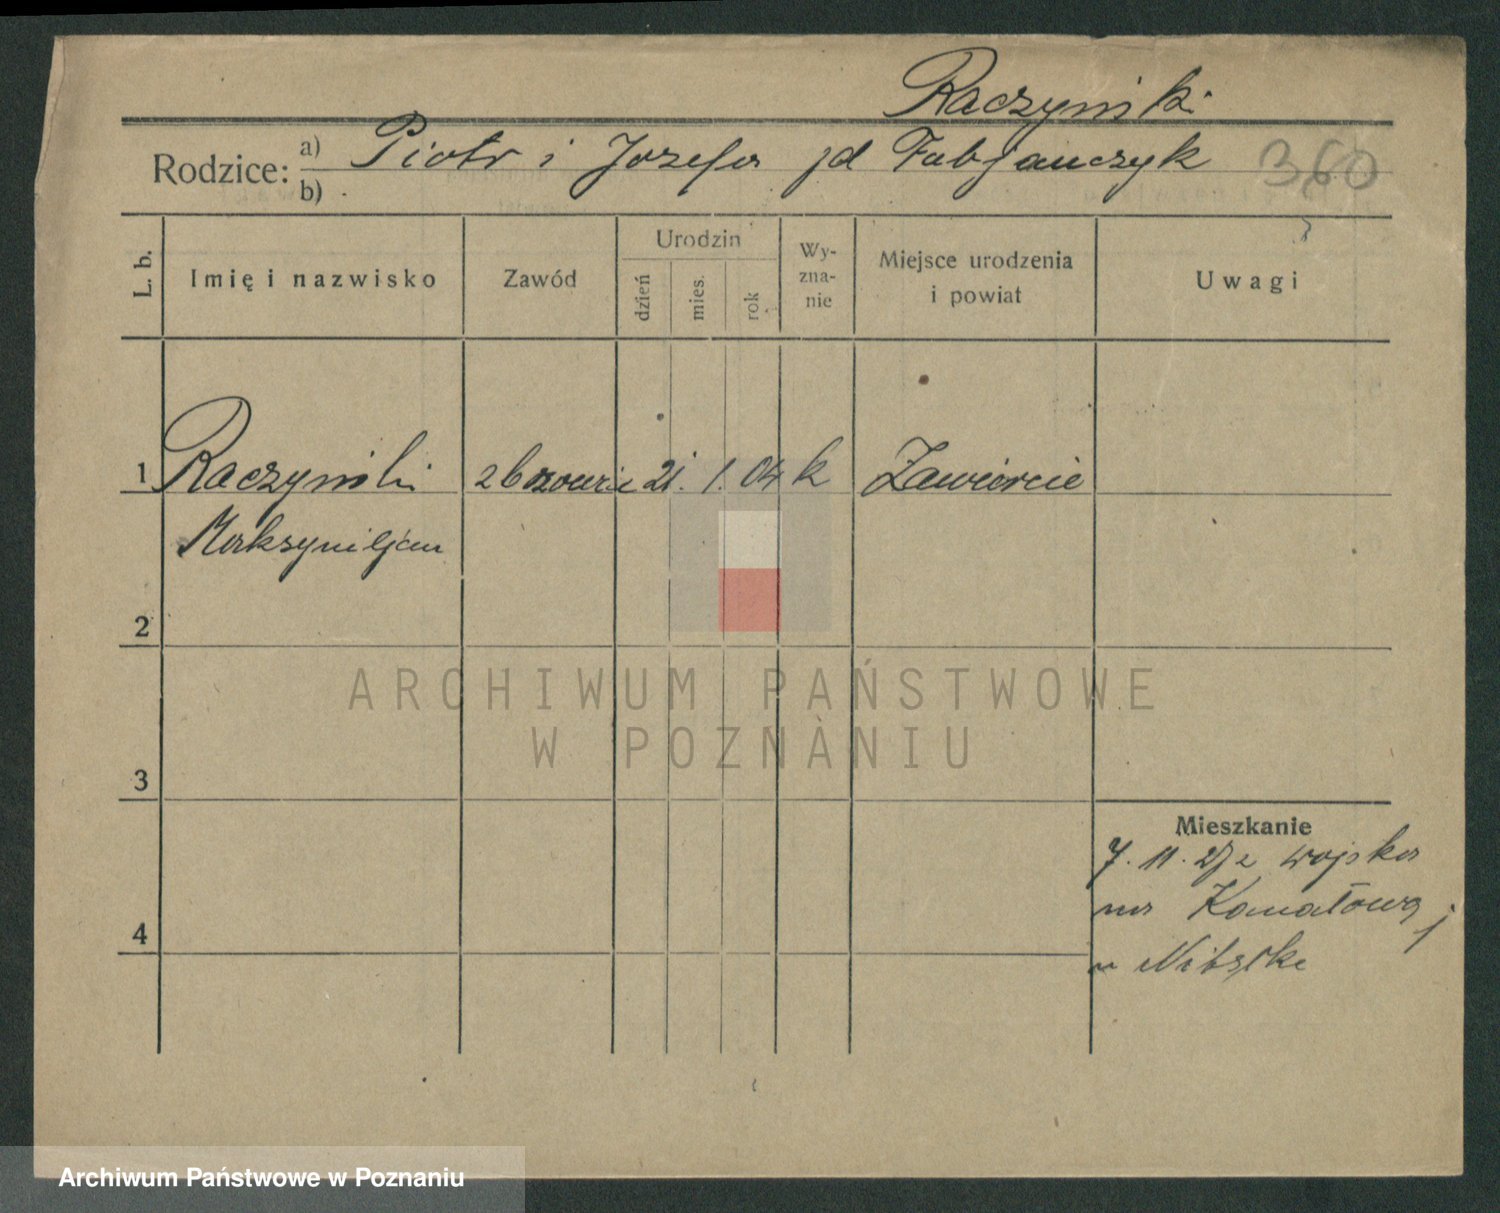 Raczyński
Rodzice: a) Piotr i Józefa zd Fabjańczyk
b)
360
L. b.
Imię i nazwisko
Zawód
Urodzin
dzień
mies.
rok
Wy-
zna-
nie
Miejsce urodzenia
i powiat
Uwagi
1 Raczyński 21. 1. 04 k Zawiercie
Maksymiljan
2
ARCHIWUM PAŃSTWOWE
W POZNANIU
3
Mieszkanie
7. 11. 27 z wojska
na
4
Archiwum Państwowe w Poznaniu